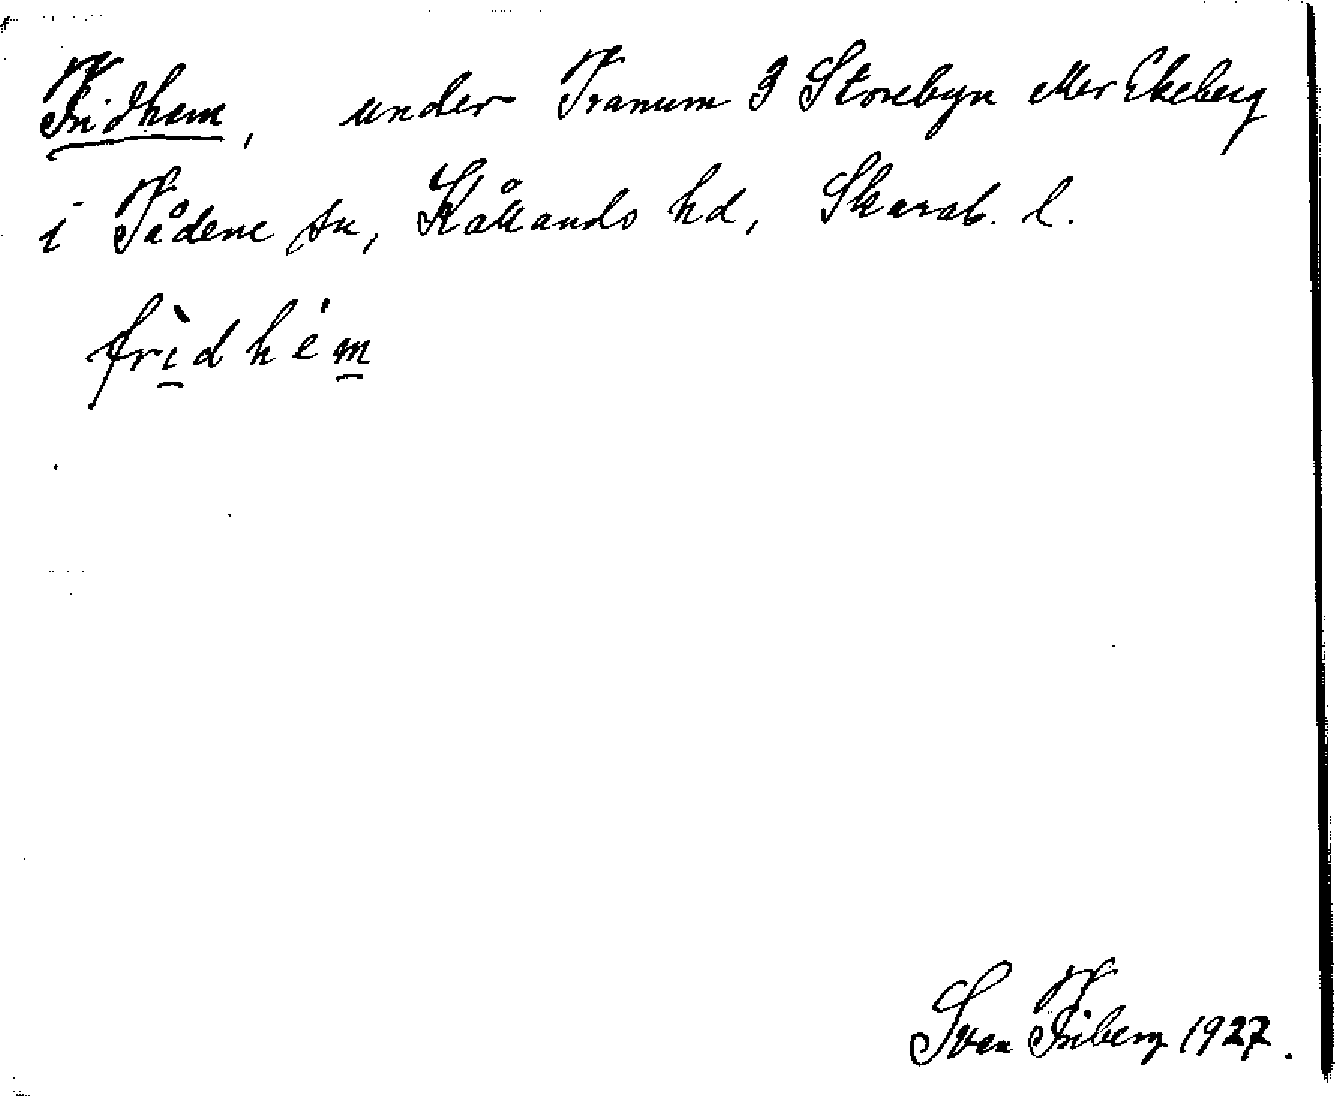 Fridhem, under Tranum 9 Storebyn eller Ekeberg
i Tådene sn, Kållands hd, Skarab. l.
frìdhém
Sven Friberg 1927.